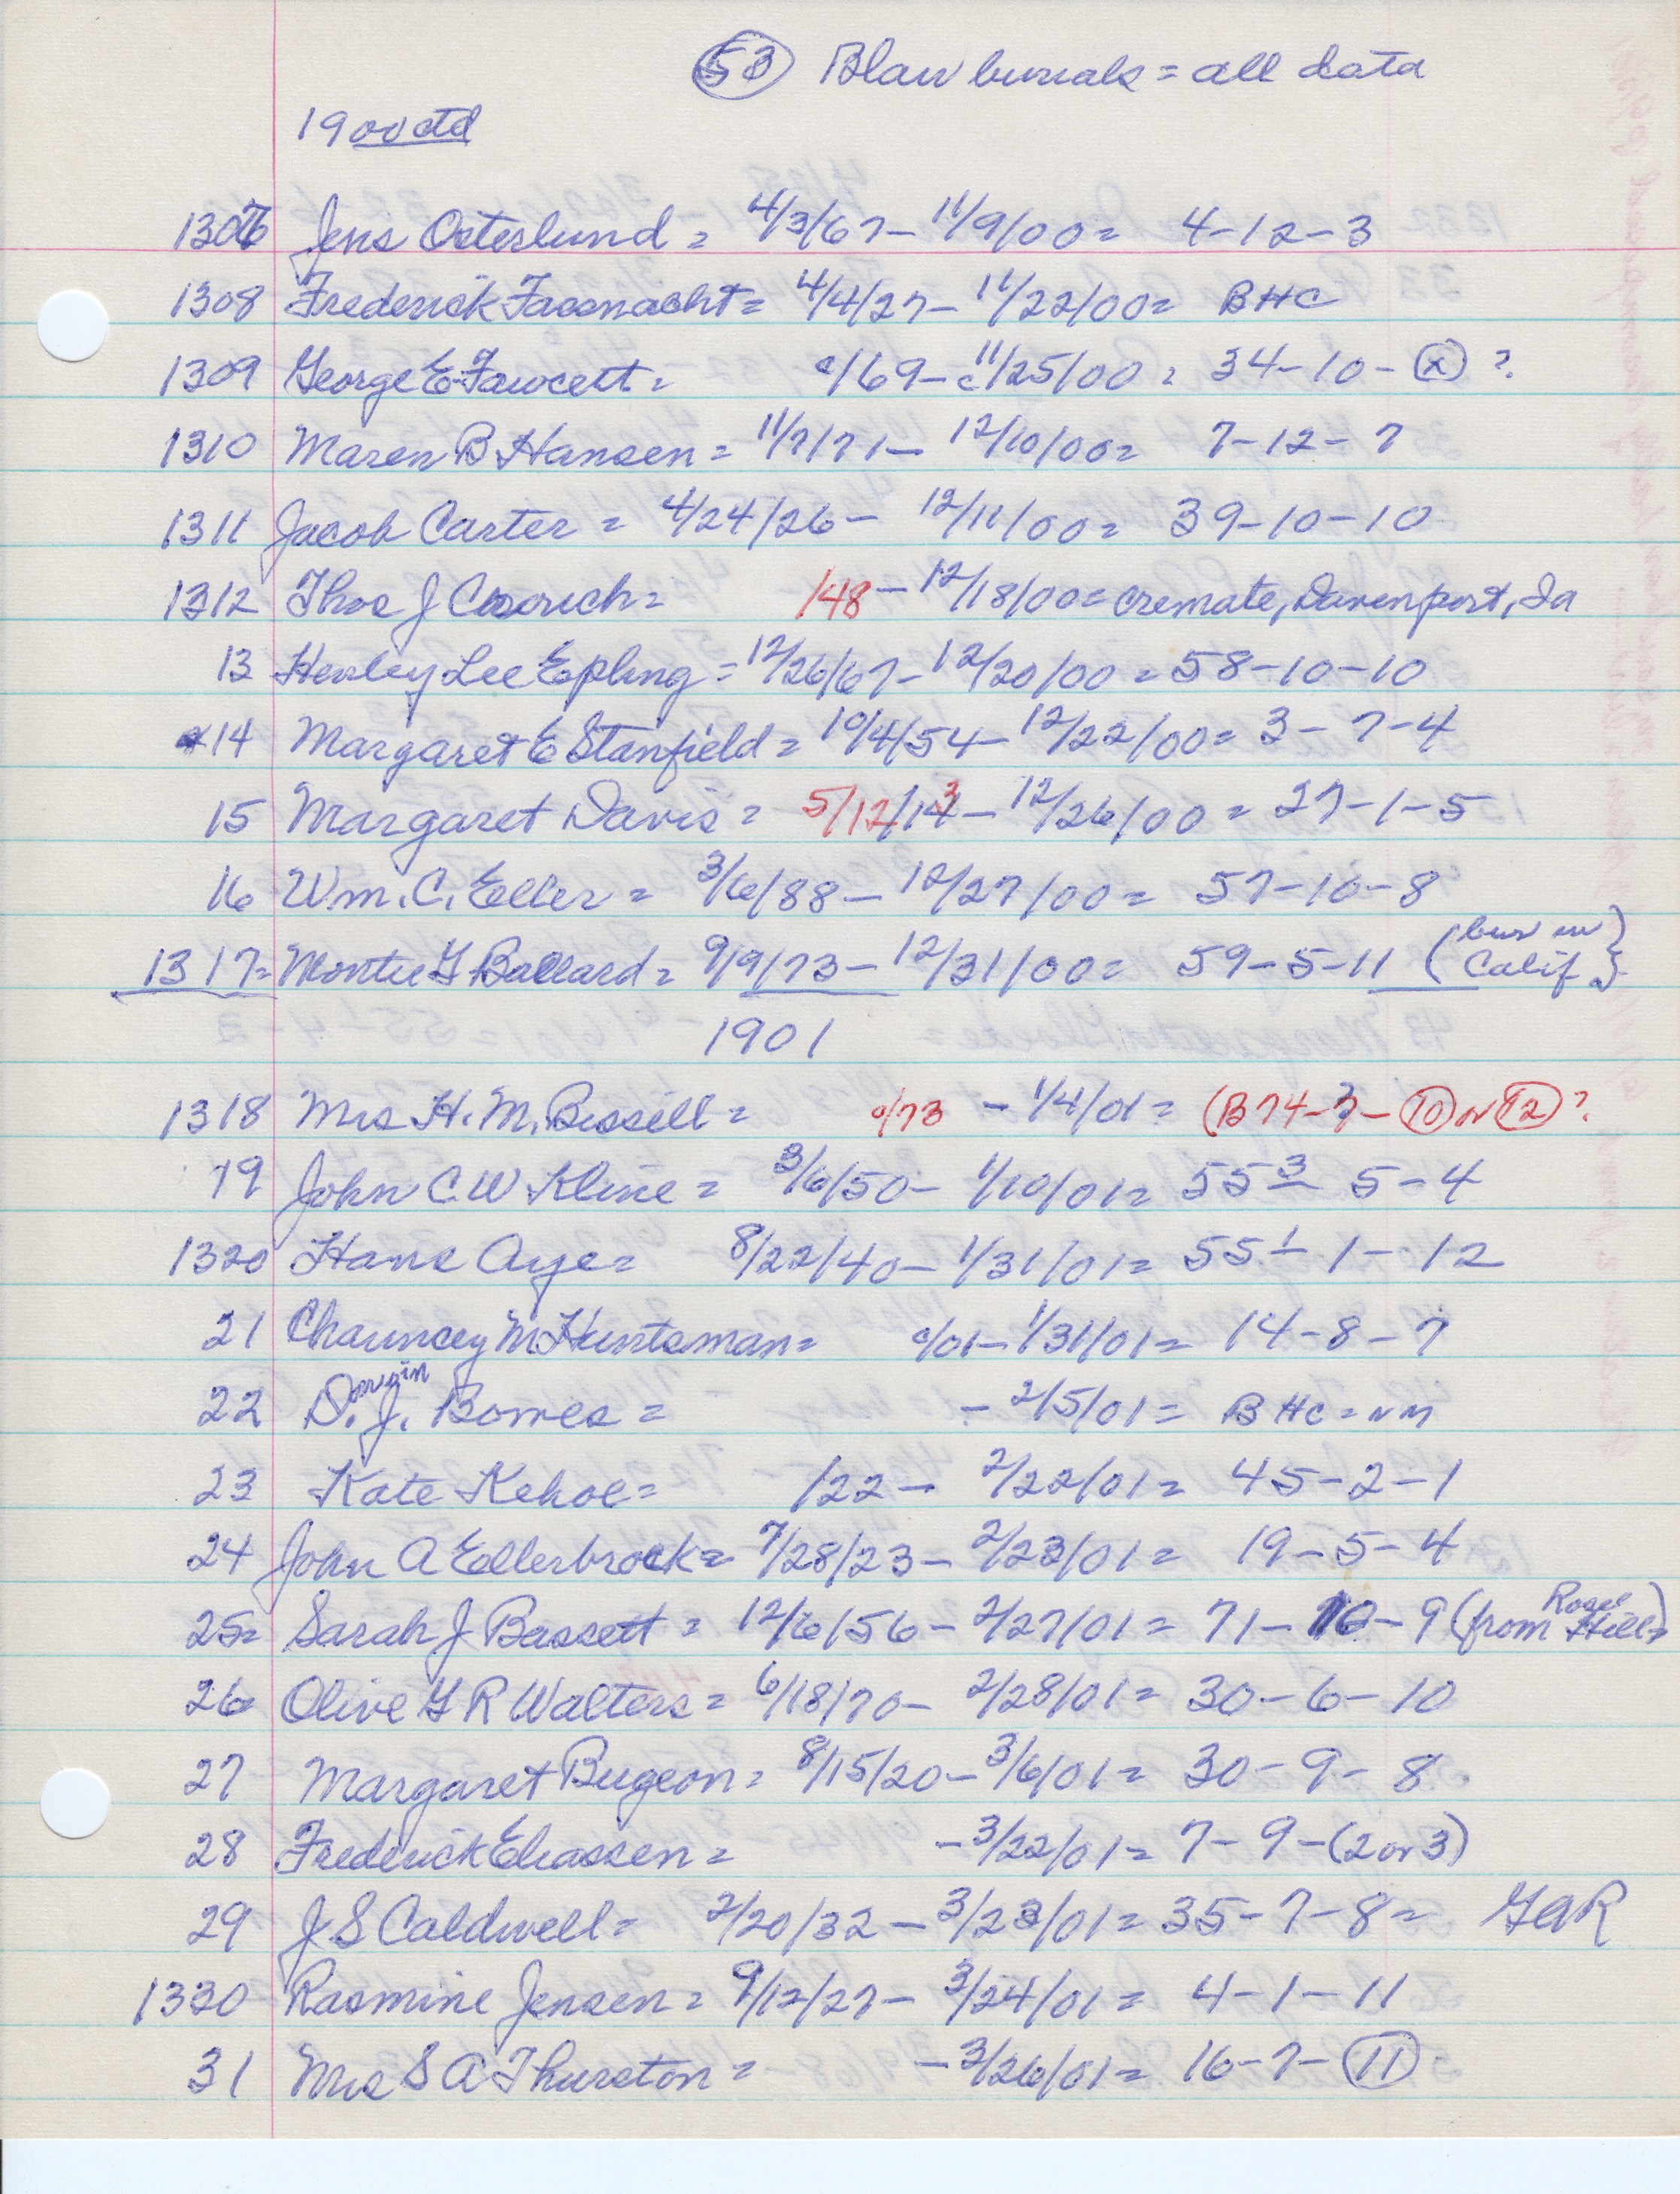 (53) Blair burials = all data
1900 ctd
1307 Jens Osterlund = 4/3/67 - 11/9/00 = 4-12-3
1308 Frederick Fassnacht = 4/4/27 - 11/22/00 = BHC
1309 George E Fawcett = c/69 - c11/25/00 = 34-10-(x) ?
1310 Maren B Hansen = 11/7/71 - 12/10/00 = 7-12-7
1311 Jacob Carter = 4/24/26 - 12/11/00 = 39-10-10
1312 Thos J = /48 - 12/18/00 = cremate, Davenport, Ia
13 Henley Lee Epling = 12/26/67 - 12/20/00 = 58-10-10
14 Margaret E Stanfield = 10/4/54 - 12/22/00 = 3-7-4
15 Margaret Davis = 5/12/13 - 12/26/00 = 27-1-5
16 Wm. C. Eller = 3/6/88 - 12/27/00 = 57-10-8
1317 = Montie G Ballard = 9/9/73 - 12/31/00 = 59-5-11 (bur in Calif)
1901
1318 Mrs H. M. Bissell = c/73 - 1/4/01 = (B74-3-(10) or (12) ?
19 John C.W Kline = 3/6/50 - 1/10/01 = 55 3 - 5-4
1320 Hans Aye = 8/22/40 - 1/31/01 = 55 1 - 1-12
21 Chauncey M Huntsman = c/01 - 1/31/01 = 14-8-7
22 D. J. Bowes = - 2/5/01 = BHC = nm
23 Kate Kehoe = /22 - 2/22/01 = 45-2-1
24 John A Ellerbrock = 7/28/23 - 2/23/01 = 19-5-4
25 = Sarah J Bassett = 12/6/56 - 2/27/01 = 71-10-9 (from Rose Hill)
26 Olive G R Walters = 6/18/70 - 2/28/01 = 30-6-10
27 Margaret Bugeon = 8/15/20 - 3/6/01 = 30-9-8
28 Frederick Eliassen = - 3/22/01 = 7-9-(2 or 3)
29 J S Caldwell = 2/20/32 - 3/23/01 = 35-7-8 = GAR
1330 Rasmine Jensen = 9/12/27 - 3/24/01 = 4-1-11
31 Mrs S A Thurston = - 3/26/01 = 16-7-(11)